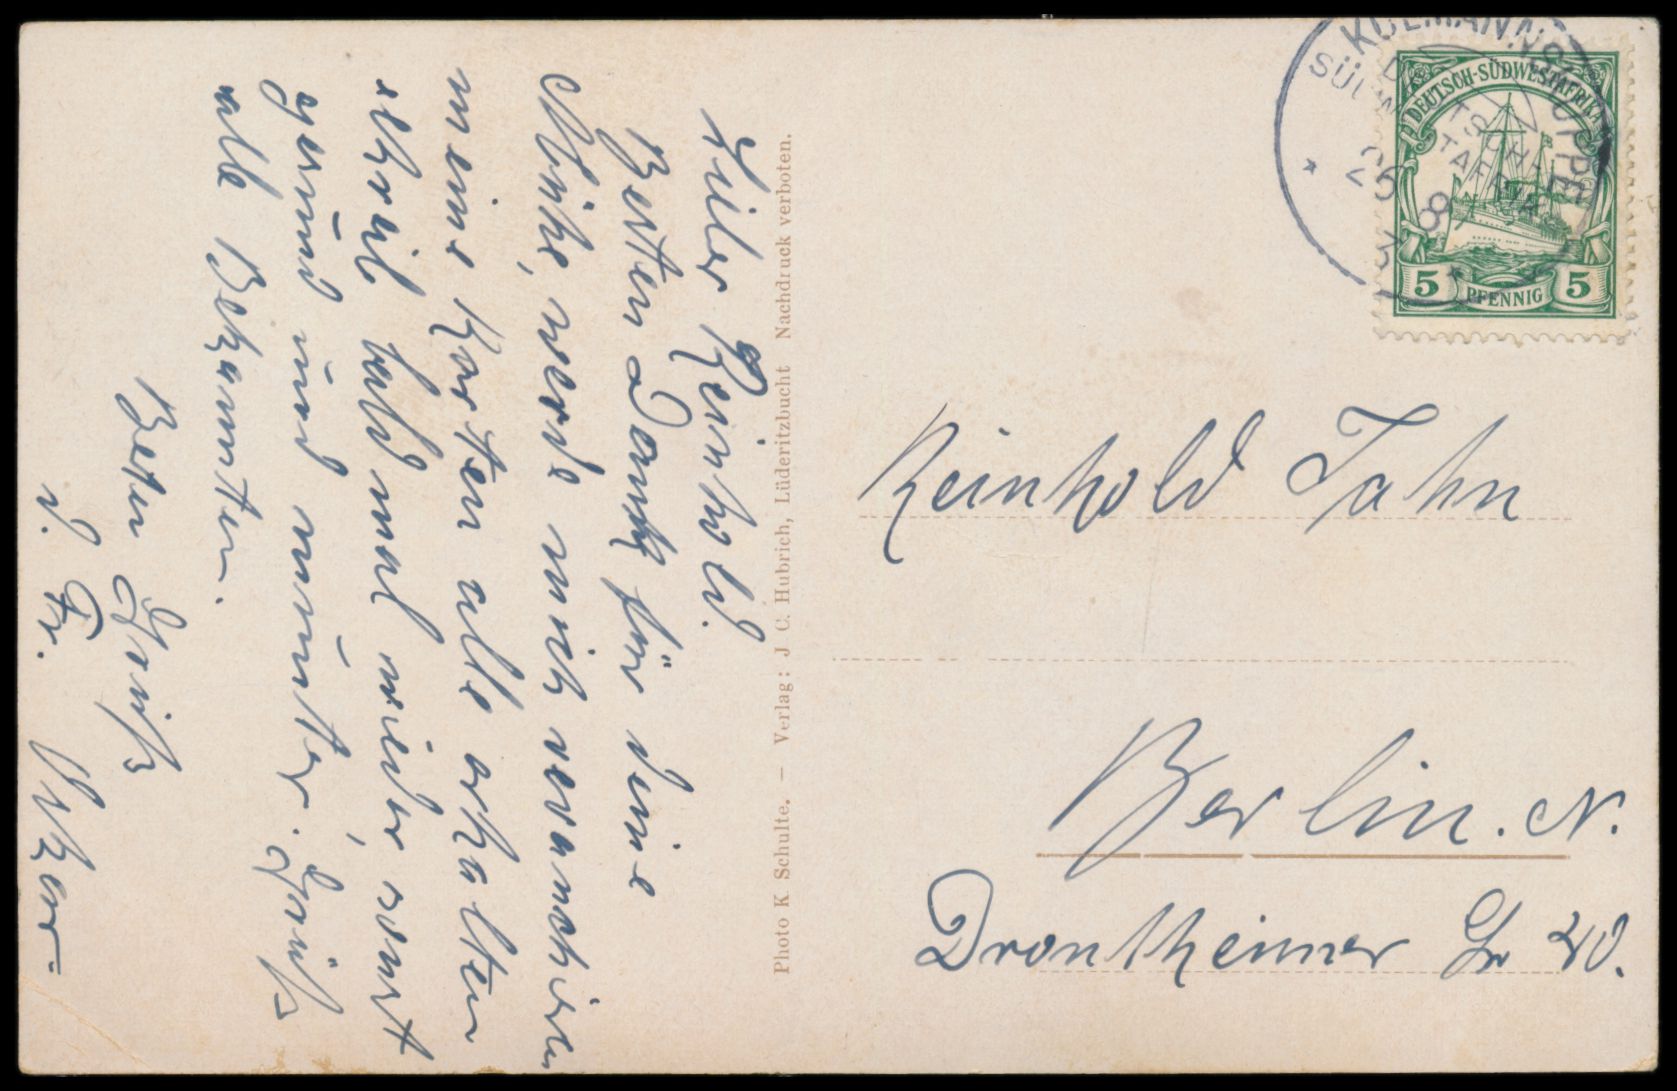 Lieber Reinhold.
Besten Dank für deine
Mühe, werde mich revanchiren
meine Karten alle erhalten
schreib bald mal wieder, sonst
gesund und munter. Grüß
alle Bekannten.
Besten Gruß
d. Fr.
Photo K Schulte. – Verlag: J. C. Hubrich, Lüderitzbucht Nachdruck verboten.
KOLMANNSKUPPE
DEUTSCH-
SÜDWESTAFRIKA
25
8
DEUTSCH-SÜDWESTAFRIKA
5 PFENNIG 5
Reinhold Jahn
Berlin. N.
Drontheimer Str 40.